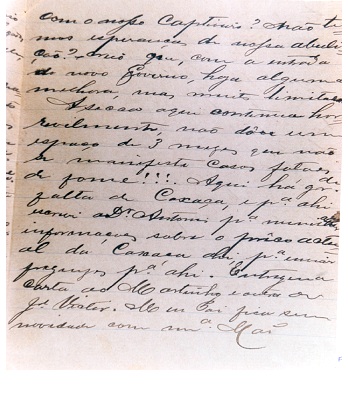 com o nosso Captiveiro? Não te
mos esperanças de nossa aboli
ção? que, com a entrada
do novo Governo, haja alguma
melhora, mas muito limitada
A secca aqui continua hor
rivelmente, não dá-se um
espaço de 3 mezes que não
se manifeste casos fataes
de fome!!! Aqui ha gr
falta de Caxaça, e pª ahi
escrevi ao Dr Antonio pª
informações sobre o preço actu
al da Caxaça dahi, pª enviar
pª ahi. Entregue a
carta ao Martinho e outra ao
Je Victor. Meu Pai fica sem
novidade com mª Mãi